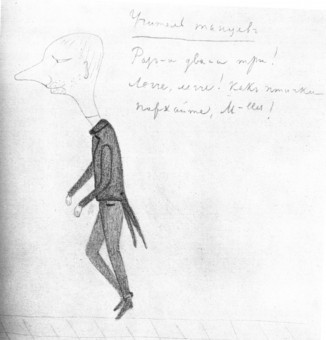 Учитель танцевъ
Раз-а два-а три!
Легче, легче! Какъ птички
порхайте, М-lle!